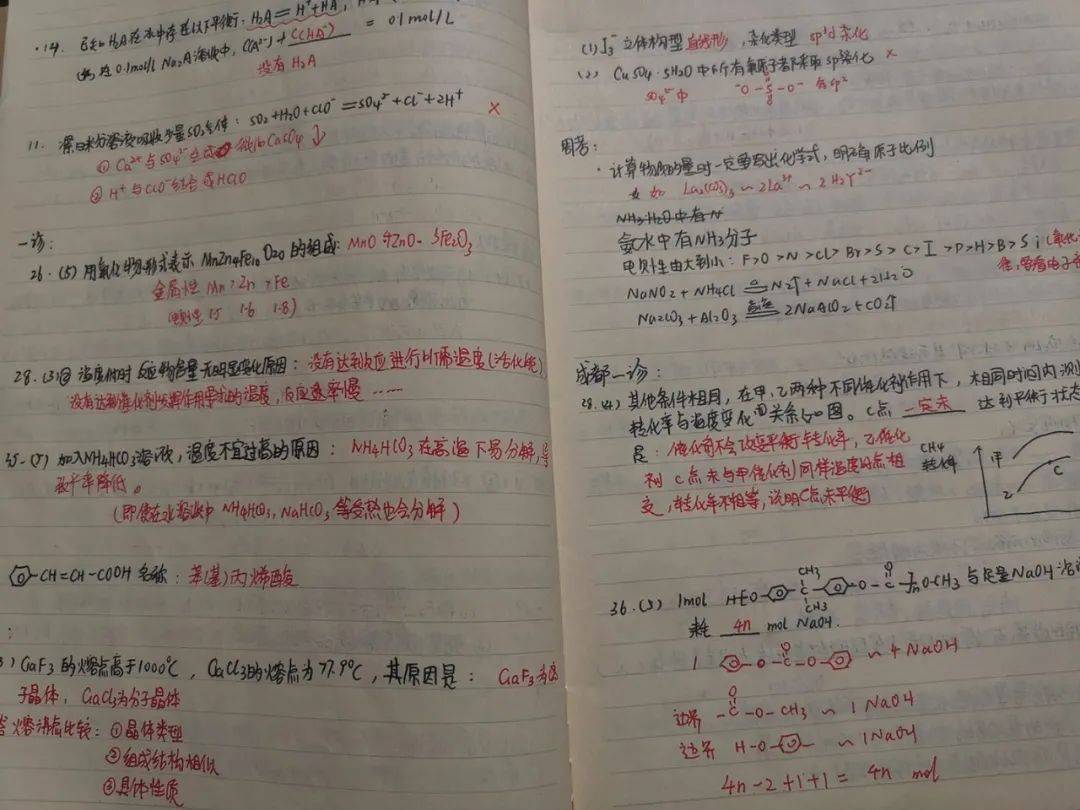 ·14. 已知H₂A在水中存在以下平衡：H₂A = H⁺+HA⁻，
0.1mol/L Na₂A溶液中，C(A²⁻)+C(HA⁻) = 0.1mol/L
没有H₂A
11. 漂白粉溶液吸收少量SO₂气体：SO₂+H₂O+ClO⁻=SO₄²⁻+Cl⁻+2H⁺ ×
① Ca²⁺与SO₄²⁻生成 CaSO₄↓
② H⁺与ClO⁻结合成HClO
一诊：
26.(5) 用氧化物形式表示 MnZn₄Fe₁₀O₂₀的组成：MnO·4ZnO·5Fe₂O₃
金属性 Mn>Zn>Fe
(电负性 1.5 1.6 1.8)
28.(3)② 温度低时反应物含量无明显变化原因：没有达到反应进行所需温度(活化能)
没有达到催化剂发挥作用需求的温度，反应速率慢……
35.(7) 加入NH₄HCO₃溶液，温度不宜过高的原因：NH₄HCO₃在高温下易分解，导
致产率降低。
(即使在水溶液中NH₄HCO₃，NaHCO₃等受热也会分解)
-CH=CH-COOH 名称：苯(基)丙烯酸
) GaF₃的熔点高于1000℃，GaCl₃的熔点为77.9℃，其原因是：GaF₃为离
子晶体，GaCl₃为分子晶体
熔沸点比较：①晶体类型
②组成结构相似
③具体性质
(1) I₃⁻立体构型 直线形，杂化类型 sp³d杂化
(2) CuSO₄·5H₂O中所有氧原子都采取sp³杂化 ×
SO₄²⁻中 -O-S-O- 有sp²
周考：
·计算物质的量时一定要写出化学式，明确原子比例
如 La₂(CO₃)₃ ~ 2La³⁺ ~ 2H₂Y²⁻
NH₃·H₂O中有N
氨水中有NH₃分子
电负性由大到小：F>O>N>Cl>Br>S>C>I>P>H>B>Si(氧化
NaNO₂+NH₄Cl =△= N₂↑+NaCl+2H₂O
Na₂CO₃+Al₂O₃ =高温= 2NaAlO₂+CO₂↑
成都一诊：
28.(4) 其他条件相同，在甲，乙两种不同催化剂作用下，相同时间内测
转化率与温度变化的关系如图。C点 一定未 达到平衡状态
是：催化剂不会改变平衡转化率，乙催化
剂C点未与甲催化剂同样温度的点相
交，转化率不相等，说明C点未平衡
CH₄
转化率
甲
乙
C
36.(5) 1mol H[O- -C- -O-C-]ₙO-CH₃ 与足量NaOH溶
CH₃
CH₃
O
耗 4n mol NaOH.
1 -O-C-O- ~ 4NaOH
O
边界 -C-O-CH₃ ~ 1NaOH
O
边界 H-O- ~ 1NaOH
4n-2+1+1= 4n mol